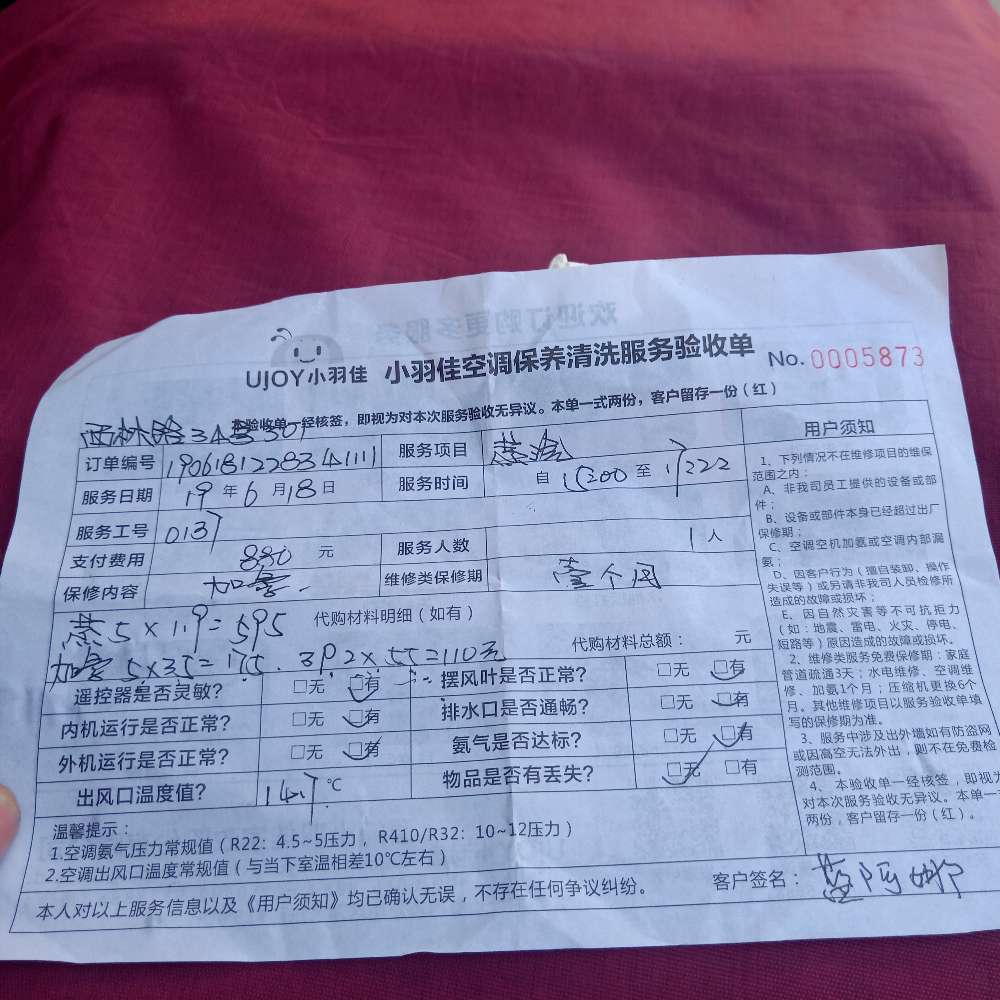 UJOY小羽佳 小羽佳空调保养清洗服务验收单 No.0005873
本验收单一经核签，即视为对本次服务验收无异议。本单一式两份，客户留存一份（红）
西林路34号301
订单编号 190618122834111 服务项目 蒸洗
服务日期 19年6月18日 服务时间 自 15200 至 17222
服务工号 0137
支付费用 880 元 服务人数 1人
保修内容 加氨 维修类保修期 壹个月
蒸5×119=595 代购材料明细（如有）
代购材料总额： 元
加氨5×35=175. 3P.2×55=110元
遥控器是否灵敏？ □无 □有 摆风叶是否正常？ □无 □有
内机运行是否正常？ □无 □有 排水口是否通畅？ □无 □有
外机运行是否正常？ □无 □有 氨气是否达标？ □无 □有
出风口温度值？ 14.7 ℃ 物品是否有丢失？ □无 □有
温馨提示：
1.空调氨气压力常规值（R22：4.5~5压力， R410/R32：10~12压力）
2.空调出风口温度常规值（与当下室温相差10℃左右）
本人对以上服务信息以及《用户须知》均已确认无误，不存在任何争议纠纷。
客户签名：
用户须知
1、下列情况不在维修项目的维保
范围之内：
A、非我司员工提供的设备或部
件；
B、设备或部件本身已经超过出厂
保修期；
C、空调空机加氨或空调内部漏
氨；
D、因客户行为（擅自装卸、操作
失误等）或另请非我司人员检修所
造成的故障或损坏；
E、因自然灾害等不可抗拒力
（如：地震、雷电、火灾、停电、
短路等）原因造成的故障或损坏。
2、维修类服务免费保修期：家庭
管道疏通3天；水电维修、空调维
修、加氨1个月；压缩机更换6个
月。其他维修项目以服务验收单填
写的保修期为准。
3、服务中涉及出外墙如有防盗网
或因高空无法外出，则不在免费检
测范围。
4、本验收单一经核签，即视为
对本次服务验收无异议。本单一式
两份，客户留存一份（红）。
欢迎订购更多服务